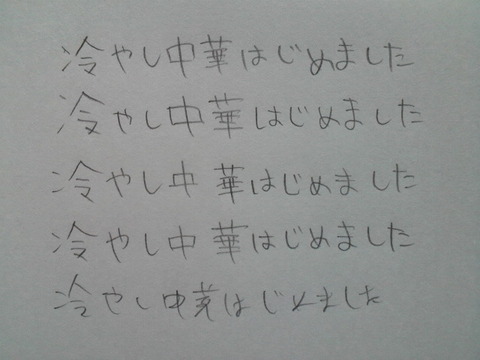 冷やし中華はじめました
冷やし中華はじめました
冷やし中華はじめました
冷やし中華はじめました
冷やし中華はじめました